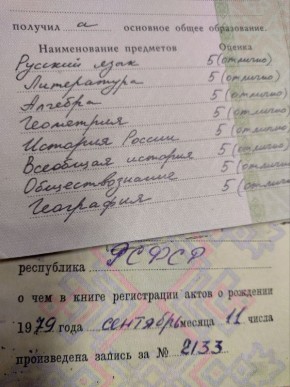 получил а основное общее образование.
Наименование предметов Оценка
Русский язык 5 (отлично)
Литература 5 (отлично)
Алгебра 5 (отлично)
Геометрия 5 (отлично)
История России 5 (отлично)
Всеобщая история 5 (отлично)
Обществознание 5 (отлично)
География
республика РСФСР
о чем в книге регистрации актов о рождении
1979 года сентябрь месяца 11 числа
произведена запись за № 2133